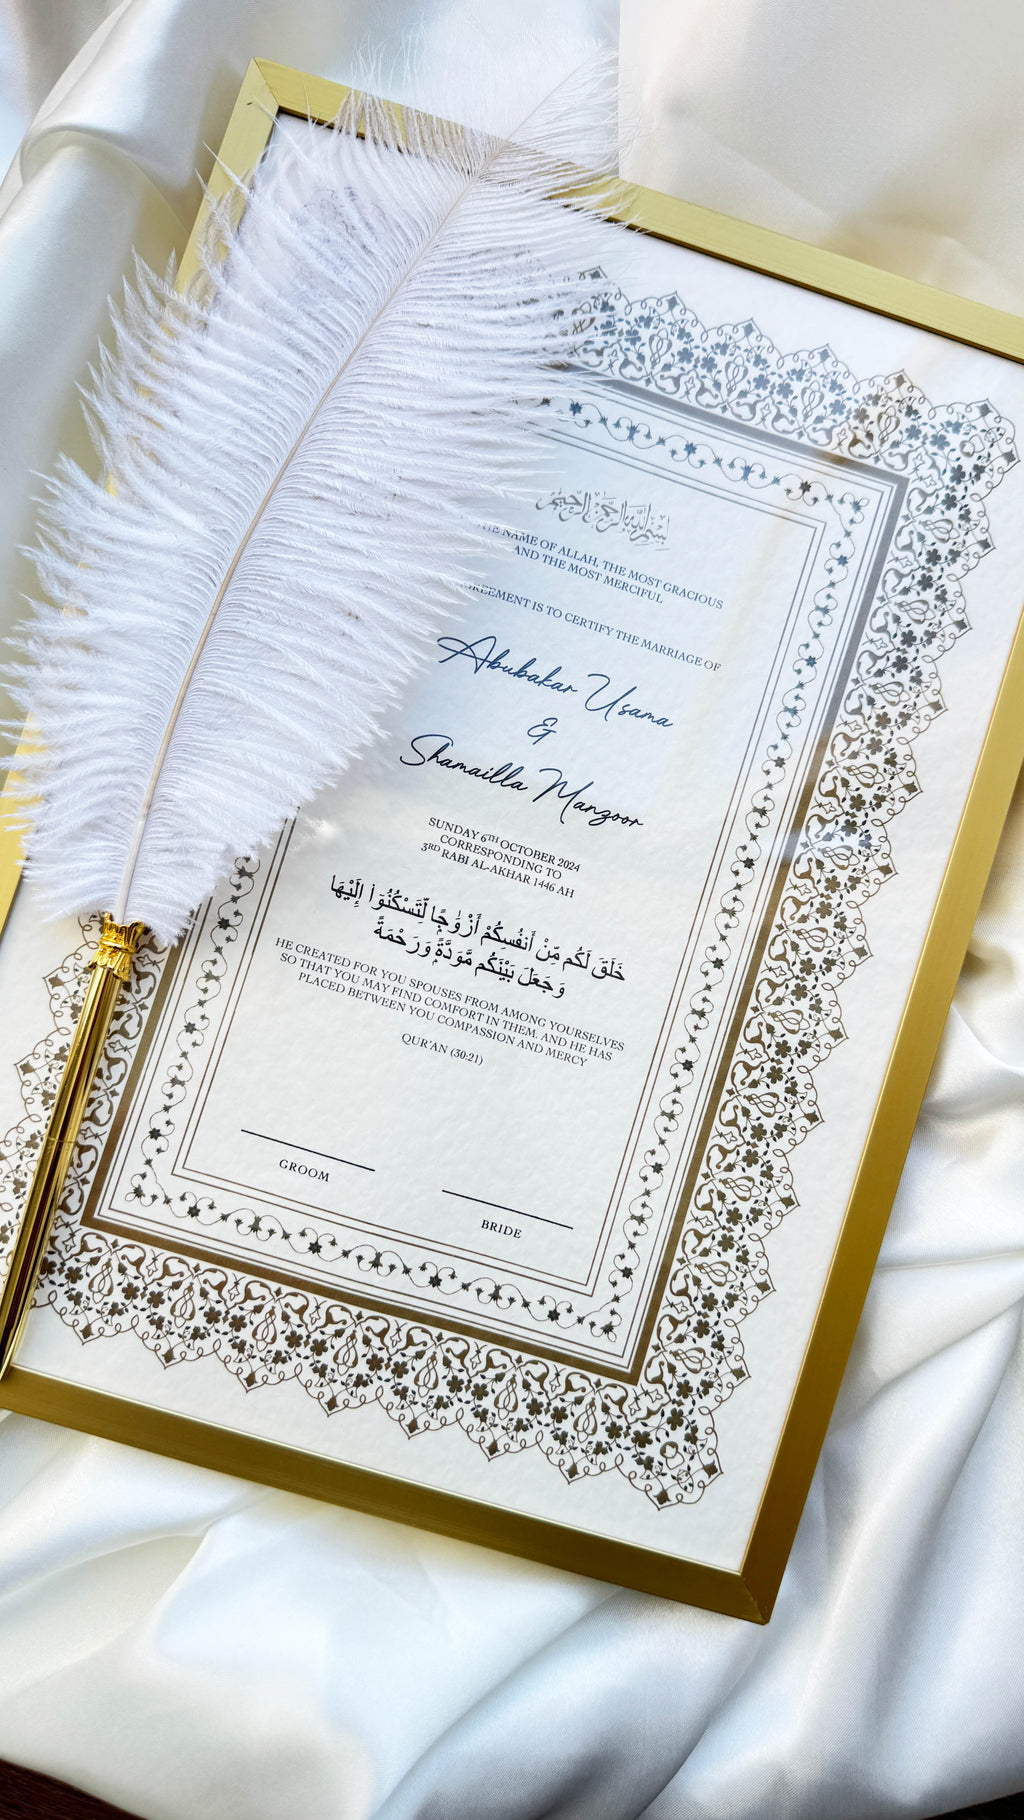 بسم الله الرحمن الرحيم
THE NAME OF ALLAH, THE MOST GRACIOUS
AND THE MOST MERCIFUL
AGREEMENT IS TO CERTIFY THE MARRIAGE OF
Abubakar Usama
&
Shamailla Manzoor
SUNDAY 6TH OCTOBER 2024
CORRESPONDING TO
3RD RABI AL-AKHAR 1446 AH
خَلَقَ لَكُم مِّنْ أَنفُسِكُمْ أَزْوَٰجًا لِّتَسْكُنُوٓا۟ إِلَيْهَا
وَجَعَلَ بَيْنَكُم مَّوَدَّةً وَرَحْمَةً
HE CREATED FOR YOU SPOUSES FROM AMONG YOURSELVES
SO THAT YOU MAY FIND COMFORT IN THEM. AND HE HAS
PLACED BETWEEN YOU COMPASSION AND MERCY
QUR'AN (30:21)
GROOM
BRIDE